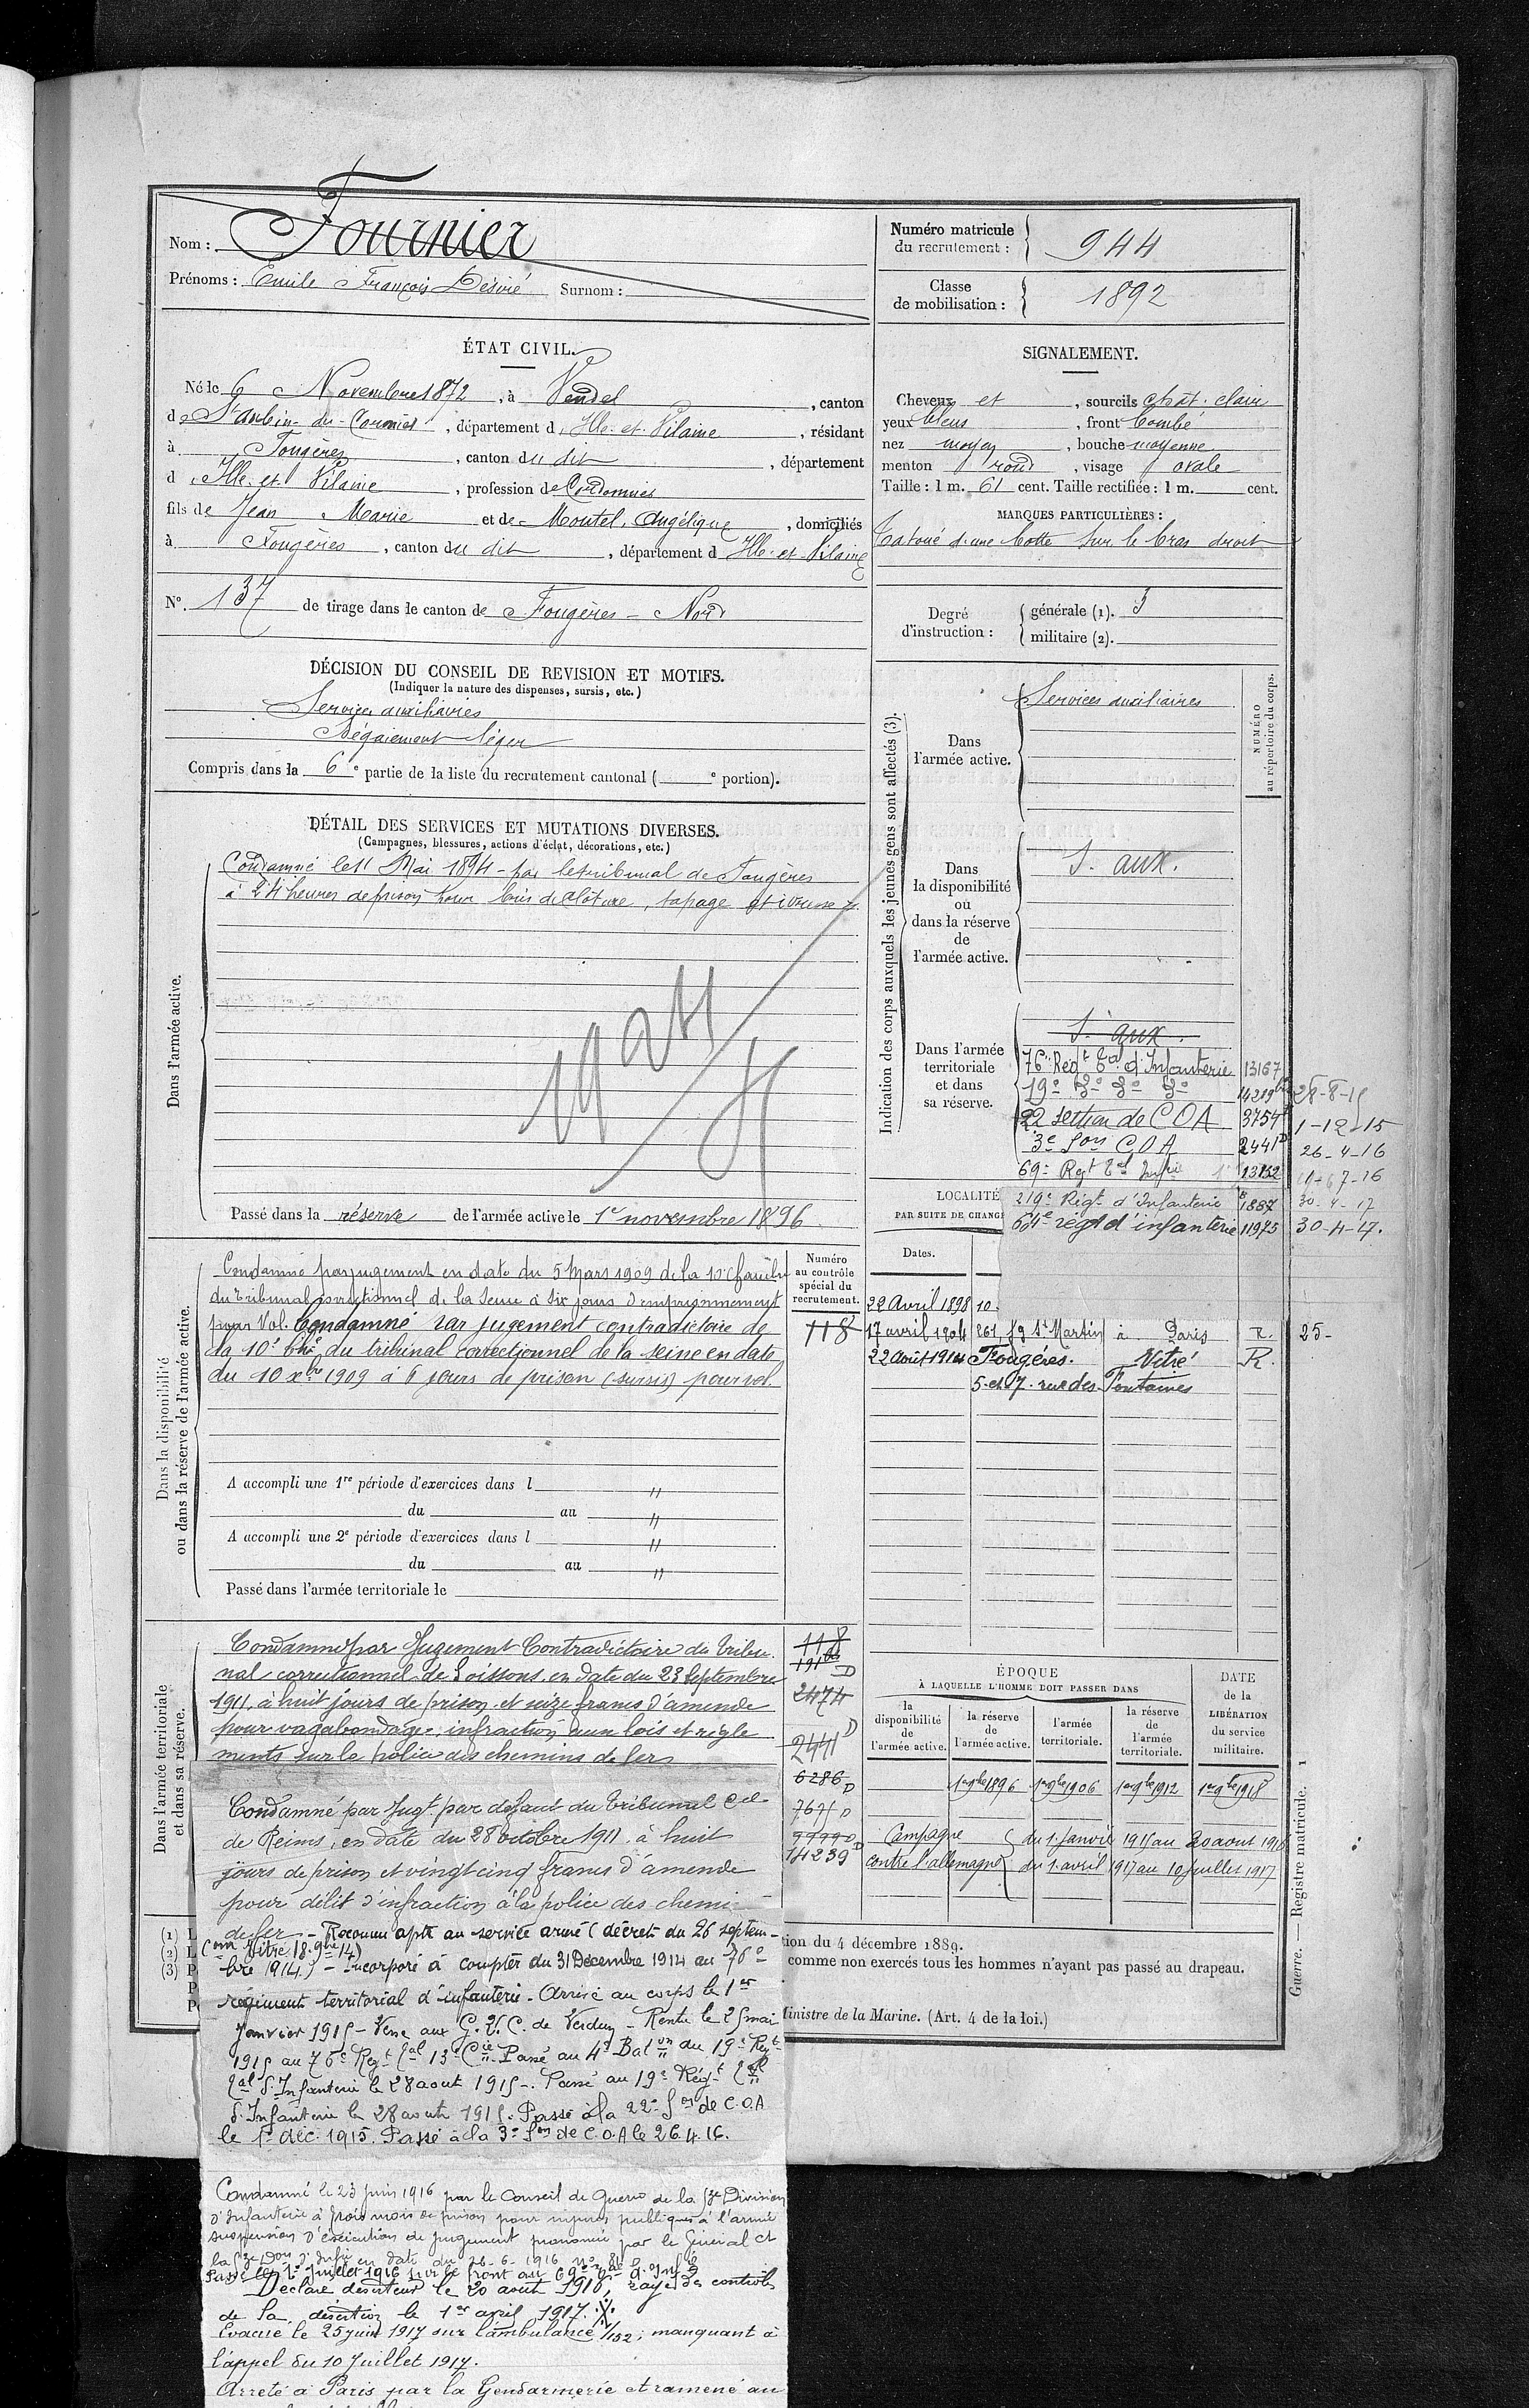 Nom : Fournier
Prénoms : Emile François Désiré Surnom :
Numéro matricule du recrutement : 944
Classe de mobilisation : 1892
ÉTAT CIVIL.
Né le 6 Novembre 1872, à Vendel, canton
de St Aubin-du-Cormier, département d'Ille-et-Vilaine, résidant
à Fougères, canton du dit, département
d'Ille-et-Vilaine, profession de Cordonnier
fils de Jean Marie et de Moutel, Angélique, domiciliés
à Fougères, canton du dit, département d'Ille-et-Vilaine
N° 137 de tirage dans le canton de Fougères-Nord
SIGNALEMENT.
Cheveux et, sourcils chât. clair
yeux bleus, front bombé
nez moyen, bouche moyenne
menton rond, visage ovale
Taille : 1 m. 61 cent. Taille rectifiée : 1 m. cent.
MARQUES PARTICULIÈRES :
Tatoué d'une botte sur le bras droit
Degré d'instruction : générale (1). 3
militaire (2).
DÉCISION DU CONSEIL DE REVISION ET MOTIFS.
(Indiquer la nature des dispenses, sursis, etc.)
Services auxiliaires
Bégaiement léger
Compris dans la 6e partie de la liste du recrutement cantonal ( e portion).
DÉTAIL DES SERVICES ET MUTATIONS DIVERSES.
(Campagnes, blessures, actions d'éclat, décorations, etc.)
Dans l'armée active.
Condamné le 11 Mai 1894 par le tribunal de Fougères
à 24 heures de prison pour bris de clôture, tapage et ivresse
Passé dans la réserve de l'armée active le 1er novembre 1896
Indication des corps auxquels les jeunes gens sont affectés (3).
NUMÉRO au répertoire du corps.
Dans l'armée active.
Services auxiliaires
Dans la disponibilité ou dans la réserve de l'armée active.
S. aux.
Dans l'armée territoriale et dans sa réserve.
S. aux.
76e Regt tal d'Infanterie 13167
19e do do do 14219 28-8-15
22 section de COA 3754 1-12-15
3e Son COA 2441 D 26-4-16
69e Regt tal Infie 13152
219e Régt d'Infanterie 1887 30-4-17
64e régt d'infanterie 11975 30-4-17.
LOCALITÉ
PAR SUITE DE CHANG
Dates.
22 Avril 1898 10.
17 avril 1904 261, fg St Martin à Paris R. 25-
22 août 1914 Fougères. Vitré R.
5 et 7 rue des Fontaines
Dans la disponibilité ou dans la réserve de l'armée active.
Numéro au contrôle spécial du recrutement.
118
Condamné par jugement en date du 5 Mars 1909 de la 10e chambre
du tribunal correctionnel de la Seine à six jours d'emprisonnement
pour Vol. Condamné par jugement contradictoire de
la 10e bhe du tribunal correctionnel de la Seine en date
du 10 xbre 1909 à 6 jours de prison (sursis) pour vol.
A accompli une 1re période d'exercices dans l "
du au "
A accompli une 2e période d'exercices dans l "
du au "
Passé dans l'armée territoriale le
Dans l'armée territoriale et dans sa réserve.
Condamné par Jugement Contradictoire du Tribu-
nal correctionnel de Soissons en date du 23 Septembre
1911, à huit jours de prison et seize francs d'amende
pour vagabondage, infraction aux lois et règle
ments sur la police des chemins de fer
118
191 bis D
2474
2441 D
6286 D
7671 D
99990 D
14239
Condamné par Jugt par défaut du Tribunal Cel
de Reims, en date du 28 octobre 1911, à huit
jours de prison et vingt cinq francs d'amende
pour délit d'infraction à la police des chemi-
de fer - Reconnu apte au service armé (décret du 26 septem-
(Con Vitré 18.9bre 14)
bre 1914) - Incorporé à compter du 31 Décembre 1914 au 76e
régiment territorial d'infanterie. Arrivé au corps le 1er
Janvier 1915 - Versé aux G.V.C. de Verdun - Rentré le 25 mai
1915 au 76e Regt tal 13e Cie Passé au 4e Baton du 19e Regt
tal d'Infanterie le 28 aout 1915. Passé au 19e Régt tal
d'Infanterie le 28 aout 1915. Passé à la 22e Son de C.O.A
le 1er déc. 1915. Passé à la 3e Son de C.O.A le 26.4.16.
Condamné le 23 juin 1916 par le Conseil de Guerre de la Division
d'Infanterie à trois mois de prison pour injures publiques à l'armée
suspension d'exécution de jugement prononcée par le Général Ct
la Don d'Infie en date du 26-6-1916
Passé le 1er Juillet 1916 sur le front au 69e tal d'Infie
Déclaré déserteur le 20 août 1916, rayé des contrôles
de la désertion le 1er avril 1917.
Evacué le 25 juin 1917 sur l'ambulance 1/152, manquant à
l'appel du 10 Juillet 1917.
Arrêté à Paris par la Gendarmerie et ramené au
ÉPOQUE
À LAQUELLE L'HOMME DOIT PASSER DANS
la disponibilité de l'armée active.
la réserve de l'armée active. 1er 9bre 1896
l'armée territoriale. 1er 9bre 1906
la réserve de l'armée territoriale. 1er 9bre 1912
DATE de la LIBÉRATION du service militaire. 1er 9bre 1918
Campagne contre l'allemagne
du 1. Janvier 1915 au 20 aout 1916
du 1. avril 1917 au 10 juillet 1917
(1) L
(2) L
(3) P
P
P
tion du 4 décembre 1889.
comme non exercés tous les hommes n'ayant pas passé au drapeau.
Ministre de la Marine. (Art. 4 de la loi.)
Guerre. — Registre matricule. 1